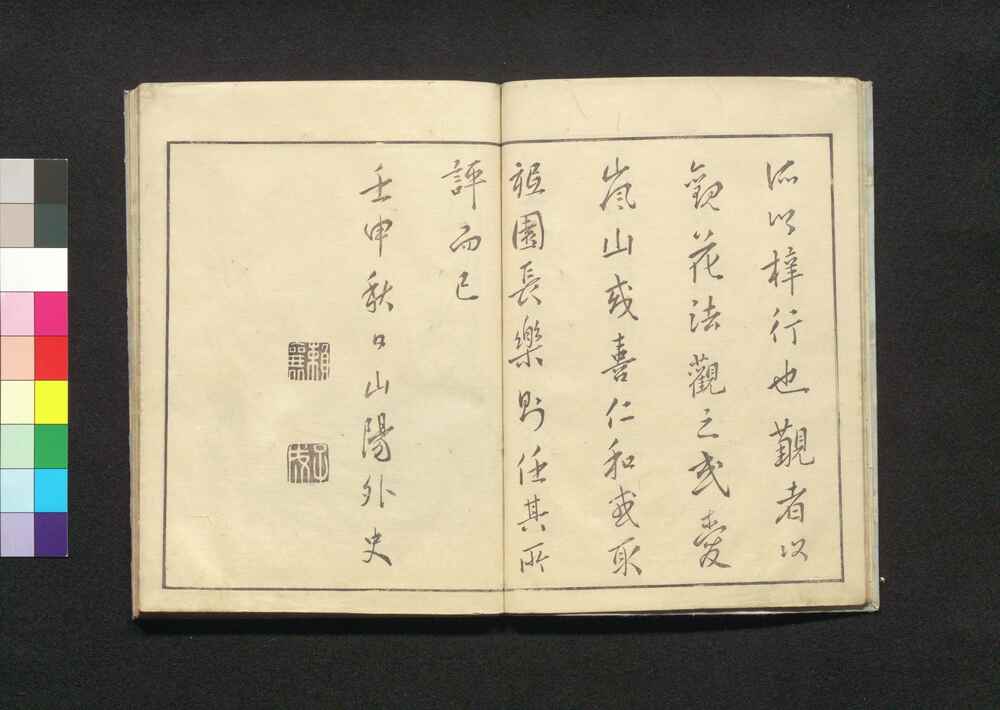 所以梓行也観者以
観花法観之或愛
嵐山或喜仁和或取
祇園長樂則任其所
評而已
壬申秋日山陽外史
頼襄
子成